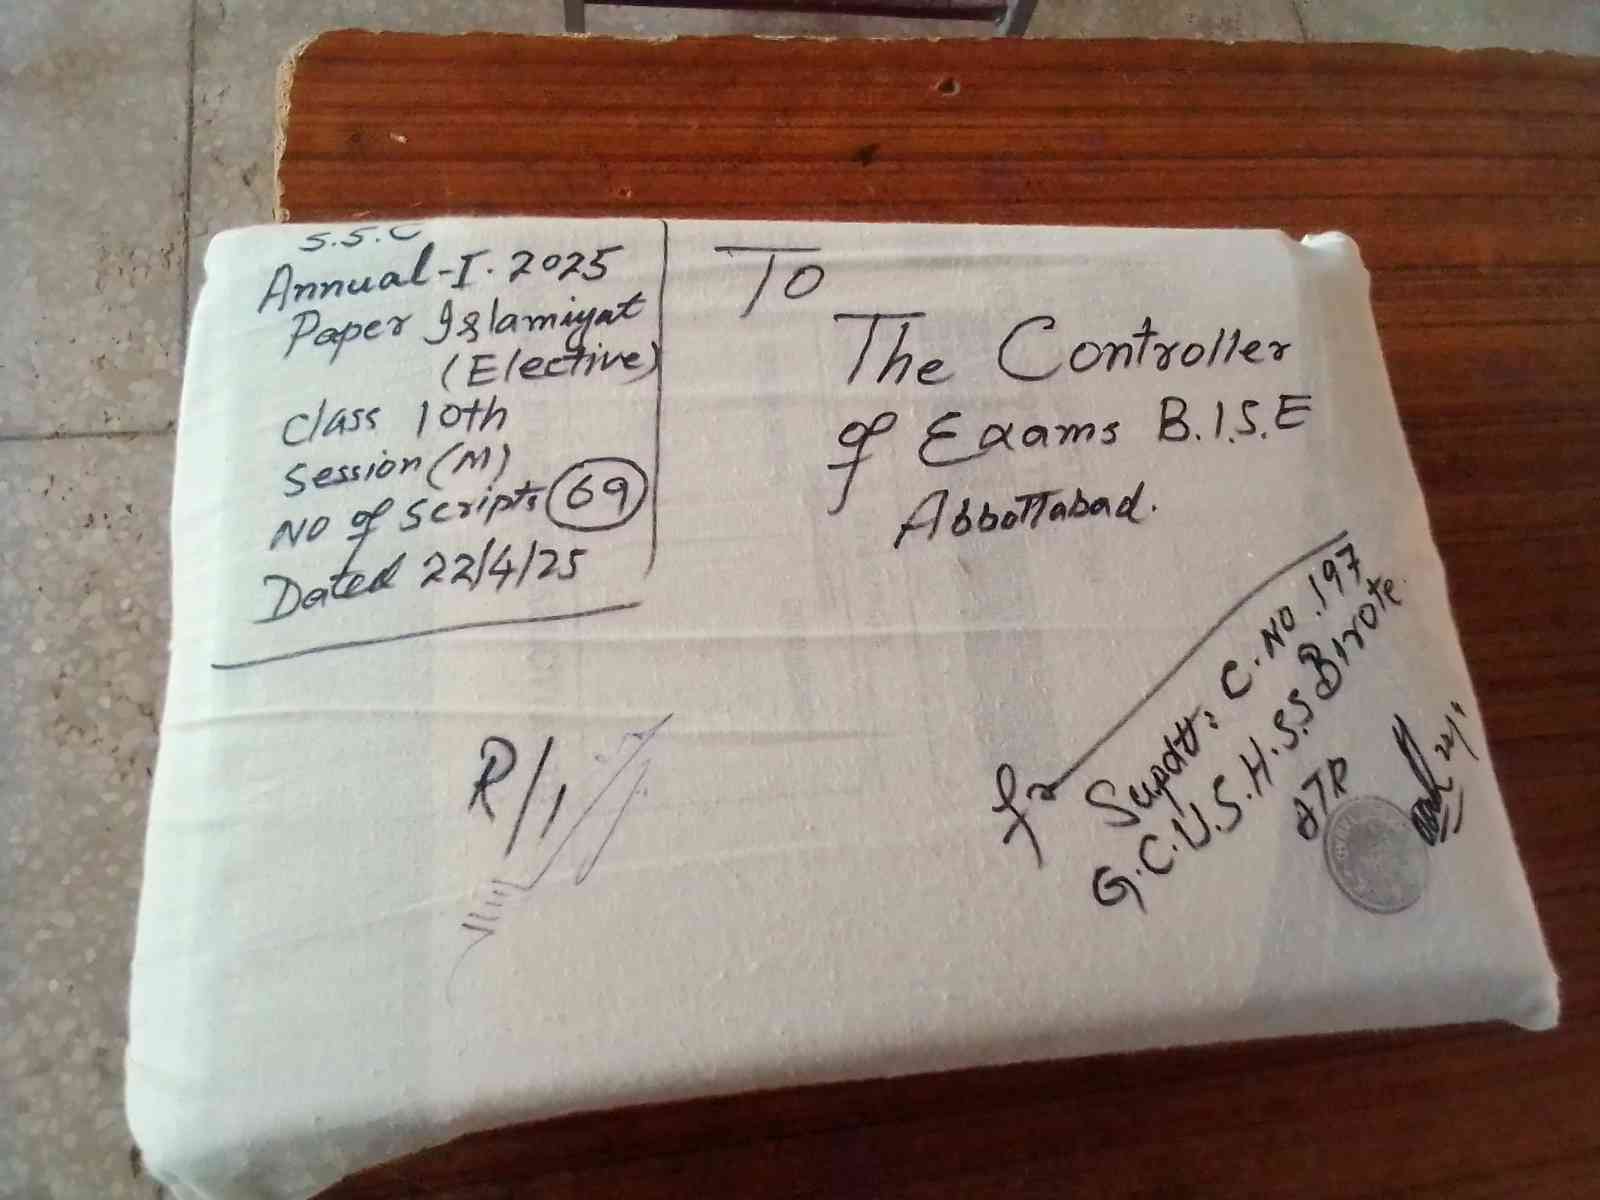 S.S.C
Annual-I. 2025
Paper Islamiyat
(Elective)
Class 10th
Session (M)
No of Scripts 69
Dated 22/4/25
To
The Controller
of Exams B.I.S.E
Abbottabad.
R/1
fr
Supdtt: C.No.197
G.C.U.S.H.S.S Birote
ATR